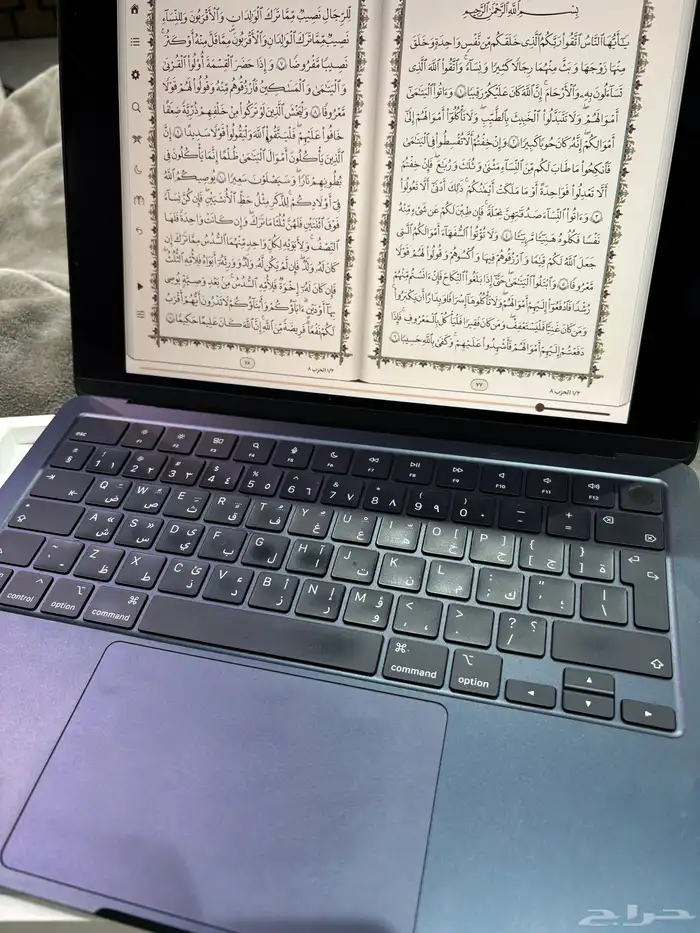 بِسْمِ ٱللَّهِ ٱلرَّحْمَٰنِ ٱلرَّحِيمِ
يَٰٓأَيُّهَا ٱلنَّاسُ ٱتَّقُوا۟ رَبَّكُمُ ٱلَّذِى خَلَقَكُم مِّن نَّفْسٍ وَٰحِدَةٍ وَخَلَقَ
مِنْهَا زَوْجَهَا وَبَثَّ مِنْهُمَا رِجَالًا كَثِيرًا وَنِسَآءً ۚ وَٱتَّقُوا۟ ٱللَّهَ ٱلَّذِى
تَسَآءَلُونَ بِهِۦ وَٱلْأَرْحَامَ ۚ إِنَّ ٱللَّهَ كَانَ عَلَيْكُمْ رَقِيبًا ١ وَءَاتُوا۟ ٱلْيَتَٰمَىٰٓ
أَمْوَٰلَهُمْ ۖ وَلَا تَتَبَدَّلُوا۟ ٱلْخَبِيثَ بِٱلطَّيِّبِ ۖ وَلَا تَأْكُلُوٓا۟ أَمْوَٰلَهُمْ إِلَىٰٓ
أَمْوَٰلِكُمْ ۚ إِنَّهُۥ كَانَ حُوبًا كَبِيرًا ٢ وَإِنْ خِفْتُمْ أَلَّا تُقْسِطُوا۟ فِى ٱلْيَتَٰمَىٰ
فَٱنكِحُوا۟ مَا طَابَ لَكُم مِّنَ ٱلنِّسَآءِ مَثْنَىٰ وَثُلَٰثَ وَرُبَٰعَ ۖ فَإِنْ خِفْتُمْ
أَلَّا تَعْدِلُوا۟ فَوَٰحِدَةً أَوْ مَا مَلَكَتْ أَيْمَٰنُكُمْ ۚ ذَٰلِكَ أَدْنَىٰٓ أَلَّا تَعُولُوا۟
٣ وَءَاتُوا۟ ٱلنِّسَآءَ صَدُقَٰتِهِنَّ نِحْلَةً ۚ فَإِن طِبْنَ لَكُمْ عَن شَىْءٍ مِّنْهُ
نَفْسًا فَكُلُوهُ هَنِيٓـًٔا مَّرِيٓـًٔا ٤ وَلَا تُؤْتُوا۟ ٱلسُّفَهَآءَ أَمْوَٰلَكُمُ ٱلَّتِى
جَعَلَ ٱللَّهُ لَكُمْ قِيَٰمًا وَٱرْزُقُوهُمْ فِيهَا وَٱكْسُوهُمْ وَقُولُوا۟ لَهُمْ قَوْلًا
مَّعْرُوفًا ٥ وَٱبْتَلُوا۟ ٱلْيَتَٰمَىٰ حَتَّىٰٓ إِذَا بَلَغُوا۟ ٱلنِّكَاحَ فَإِنْ ءَانَسْتُم مِّنْهُمْ
رُشْدًا فَٱدْفَعُوٓا۟ إِلَيْهِمْ أَمْوَٰلَهُمْ ۖ وَلَا تَأْكُلُوهَآ إِسْرَافًا وَبِدَارًا أَن يَكْبَرُوا۟ ۚ
وَمَن كَانَ غَنِيًّا فَلْيَسْتَعْفِفْ ۖ وَمَن كَانَ فَقِيرًا فَلْيَأْكُلْ بِٱلْمَعْرُوفِ ۚ فَإِذَا
دَفَعْتُمْ إِلَيْهِمْ أَمْوَٰلَهُمْ فَأَشْهِدُوا۟ عَلَيْهِمْ ۚ وَكَفَىٰ بِٱللَّهِ حَسِيبًا ٦
٧٧
١/٢ الحزب ٨
لِّلرِّجَالِ نَصِيبٌ مِّمَّا تَرَكَ ٱلْوَٰلِدَانِ وَٱلْأَقْرَبُونَ وَلِلنِّسَآءِ
نَصِيبٌ مِّمَّا تَرَكَ ٱلْوَٰلِدَانِ وَٱلْأَقْرَبُونَ مِمَّا قَلَّ مِنْهُ أَوْ كَثُرَ ۚ
نَصِيبًا مَّفْرُوضًا ٧ وَإِذَا حَضَرَ ٱلْقِسْمَةَ أُو۟لُوا۟ ٱلْقُرْبَىٰ
وَٱلْيَتَٰمَىٰ وَٱلْمَسَٰكِينُ فَٱرْزُقُوهُم مِّنْهُ وَقُولُوا۟ لَهُمْ قَوْلًا
مَّعْرُوفًا ٨ وَلْيَخْشَ ٱلَّذِينَ لَوْ تَرَكُوا۟ مِنْ خَلْفِهِمْ ذُرِّيَّةً ضِعَٰفًا
خَافُوا۟ عَلَيْهِمْ فَلْيَتَّقُوا۟ ٱللَّهَ وَلْيَقُولُوا۟ قَوْلًا سَدِيدًا ٩ إِنَّ
ٱلَّذِينَ يَأْكُلُونَ أَمْوَٰلَ ٱلْيَتَٰمَىٰ ظُلْمًا إِنَّمَا يَأْكُلُونَ فِى
بُطُونِهِمْ نَارًا ۖ وَسَيَصْلَوْنَ سَعِيرًا ١٠ يُوصِيكُمُ ٱللَّهُ
فِىٓ أَوْلَٰدِكُمْ ۖ لِلذَّكَرِ مِثْلُ حَظِّ ٱلْأُنثَيَيْنِ ۚ فَإِن كُنَّ نِسَآءً
فَوْقَ ٱثْنَتَيْنِ فَلَهُنَّ ثُلُثَا مَا تَرَكَ ۖ وَإِن كَانَتْ وَٰحِدَةً فَلَهَا
ٱلنِّصْفُ ۚ وَلِأَبَوَيْهِ لِكُلِّ وَٰحِدٍ مِّنْهُمَا ٱلسُّدُسُ مِمَّا تَرَكَ إِن
كَانَ لَهُۥ وَلَدٌ ۚ فَإِن لَّمْ يَكُن لَّهُۥ وَلَدٌ وَوَرِثَهُۥٓ أَبَوَاهُ فَلِأُمِّهِ ٱلثُّلُثُ ۚ
فَإِن كَانَ لَهُۥٓ إِخْوَةٌ فَلِأُمِّهِ ٱلسُّدُسُ ۚ مِنۢ بَعْدِ وَصِيَّةٍ يُوصِى
بِهَآ أَوْ دَيْنٍ ۗ ءَابَآؤُكُمْ وَأَبْنَآؤُكُمْ لَا تَدْرُونَ أَيُّهُمْ أَقْرَبُ
لَكُمْ نَفْعًا ۚ فَرِيضَةً مِّنَ ٱللَّهِ ۗ إِنَّ ٱللَّهَ كَانَ عَلِيمًا حَكِيمًا ١١
٧٨
١/٢ الحزب ٨
esc F1 F2 F3 F4 F5 F6 F7 F8 F9 F10 F11 F12
§ ± ! 1 ١ @ 2 ٢ # 3 ٣ $ 4 ٤ % 5 ٥ ^ 6 ٦ & 7 ٧ * 8 ٨ ( 9 ٩ ) 0 ٠ _ - + =
Q ض W ص E ث R ق T ف Y غ U ع I ه O خ P ح { [ ج } ] ة
A ش S س D ي F ب G ل H ا J ت K ن L م : ; ك " '
~ ` Z ظ X ط C ذ V ر B ز N ز M و < , > . ? / | \
control option command command option
حراج